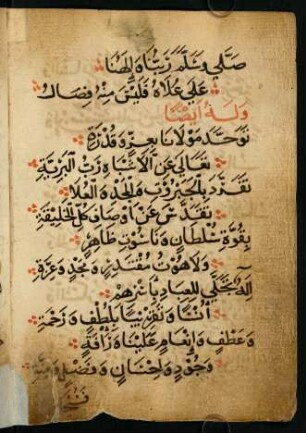 صَلَّى وَسَلَّمَ رَبُّنَا وَإِلَهُنَا
عَلَى عُلَاهُ فَلَيْسَ مِنْهُ فِصَالُ
وَلَهُ أَيْضًا
تَوَحَّدَ مَوْلَانَا بِعِزٍّ وَقُدْرَةٍ
تَعَالَى عَنِ الْأَشْبَاهِ رَبُّ الْبَرِيَّةِ
تَفَرَّدَ بِالْجَبَرُوتِ وَالْمَجْدِ وَالْعُلَا
تَقَدَّسَ عَنْ أَوْصَافِ كُلِّ الْخَلِيقَةِ
بِقُوَّةِ سُلْطَانٍ وَنَاسُوتِ ظَاهِرٍ
وَلَاهُوتِ مُقْتَدِرٍ وَمَجْدٍ وَعِزَّةِ
إِلَهٌ تَجَلَّى لِلْعِبَادِ بِأَسْرِهِمْ
أُنْسًا وَتَقْرِيبًا بِلُطْفٍ وَرَحْمَةِ
وَعَطْفٍ وَإِنْعَامٍ عَلَيْنَا وَرَأْفَةٍ
وَجُودٍ وَإِحْسَانٍ وَفَضْلٍ وَمِنَّةِ